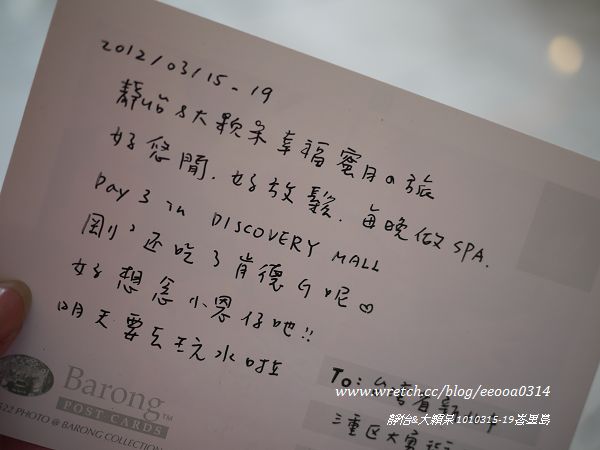 2012/03/15-19
靜怡&大顆呆幸福蜜月の旅
好悠閒.好放鬆.每晚做SPA.
Day 3 in DISCOVERY MALL
剛剛还吃了肯德G呢♡
好想念小恩仔吔!!
明天要去玩水啦
To: 台灣省
三重区大
Barong™
POST CARDS
522 PHOTO @ BARONG COLLECTION
www.wretch.cc/blog/eeooa0314
靜怡&大顆呆1010315-19峇里島